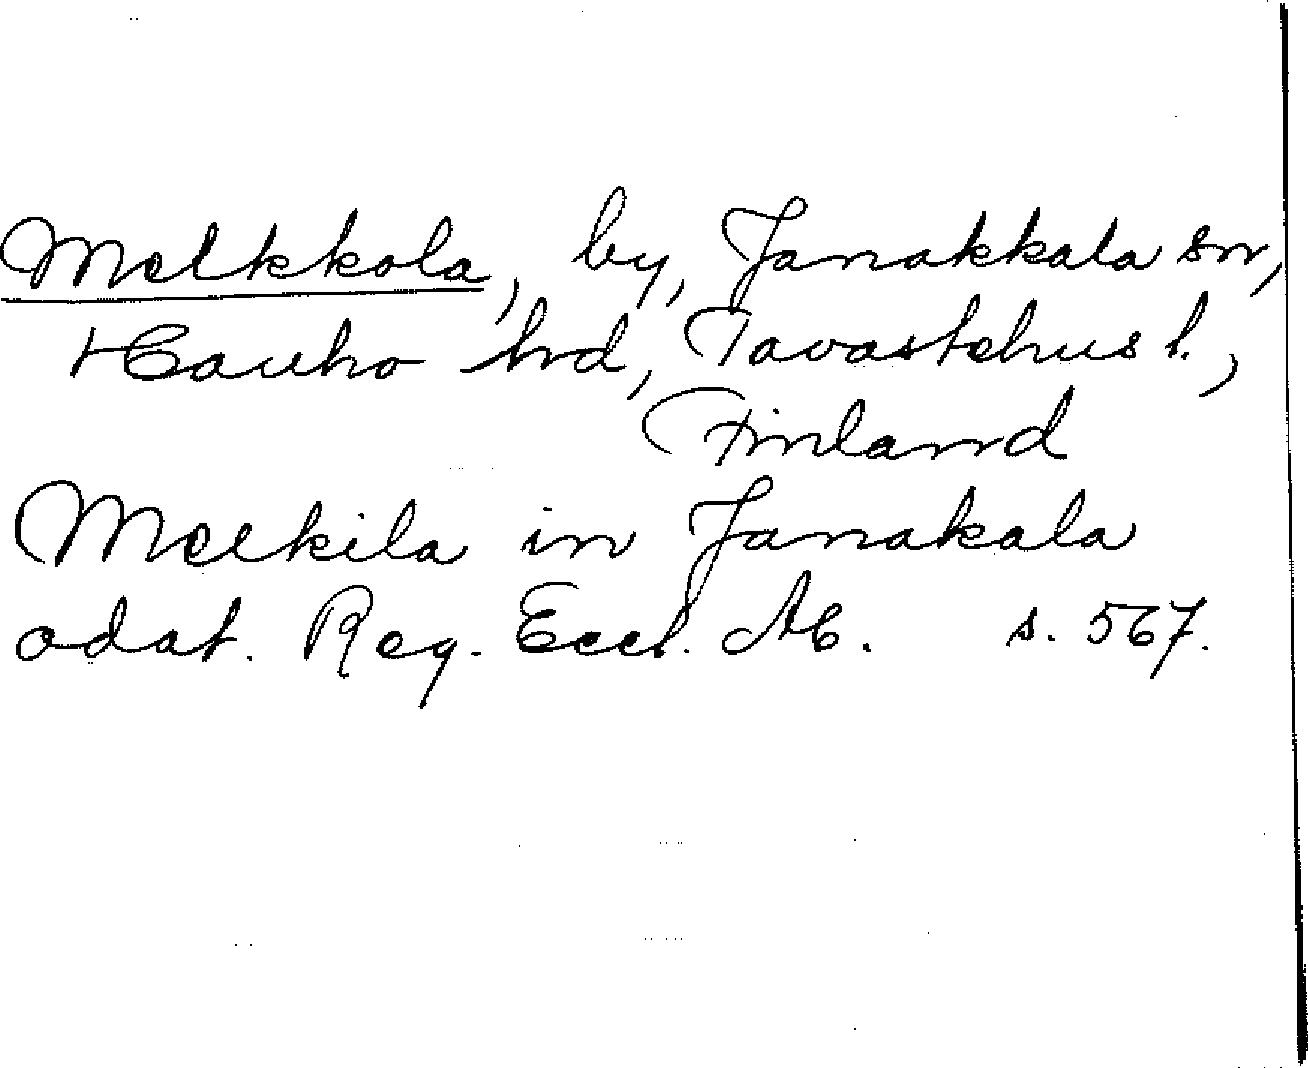 Melkkola, by, Janakkala sn,
Hauho hrd, Tavastehus l.,
Finland
Melkila in Janakala
odat. Reg. Eccl. Ab. s. 567.